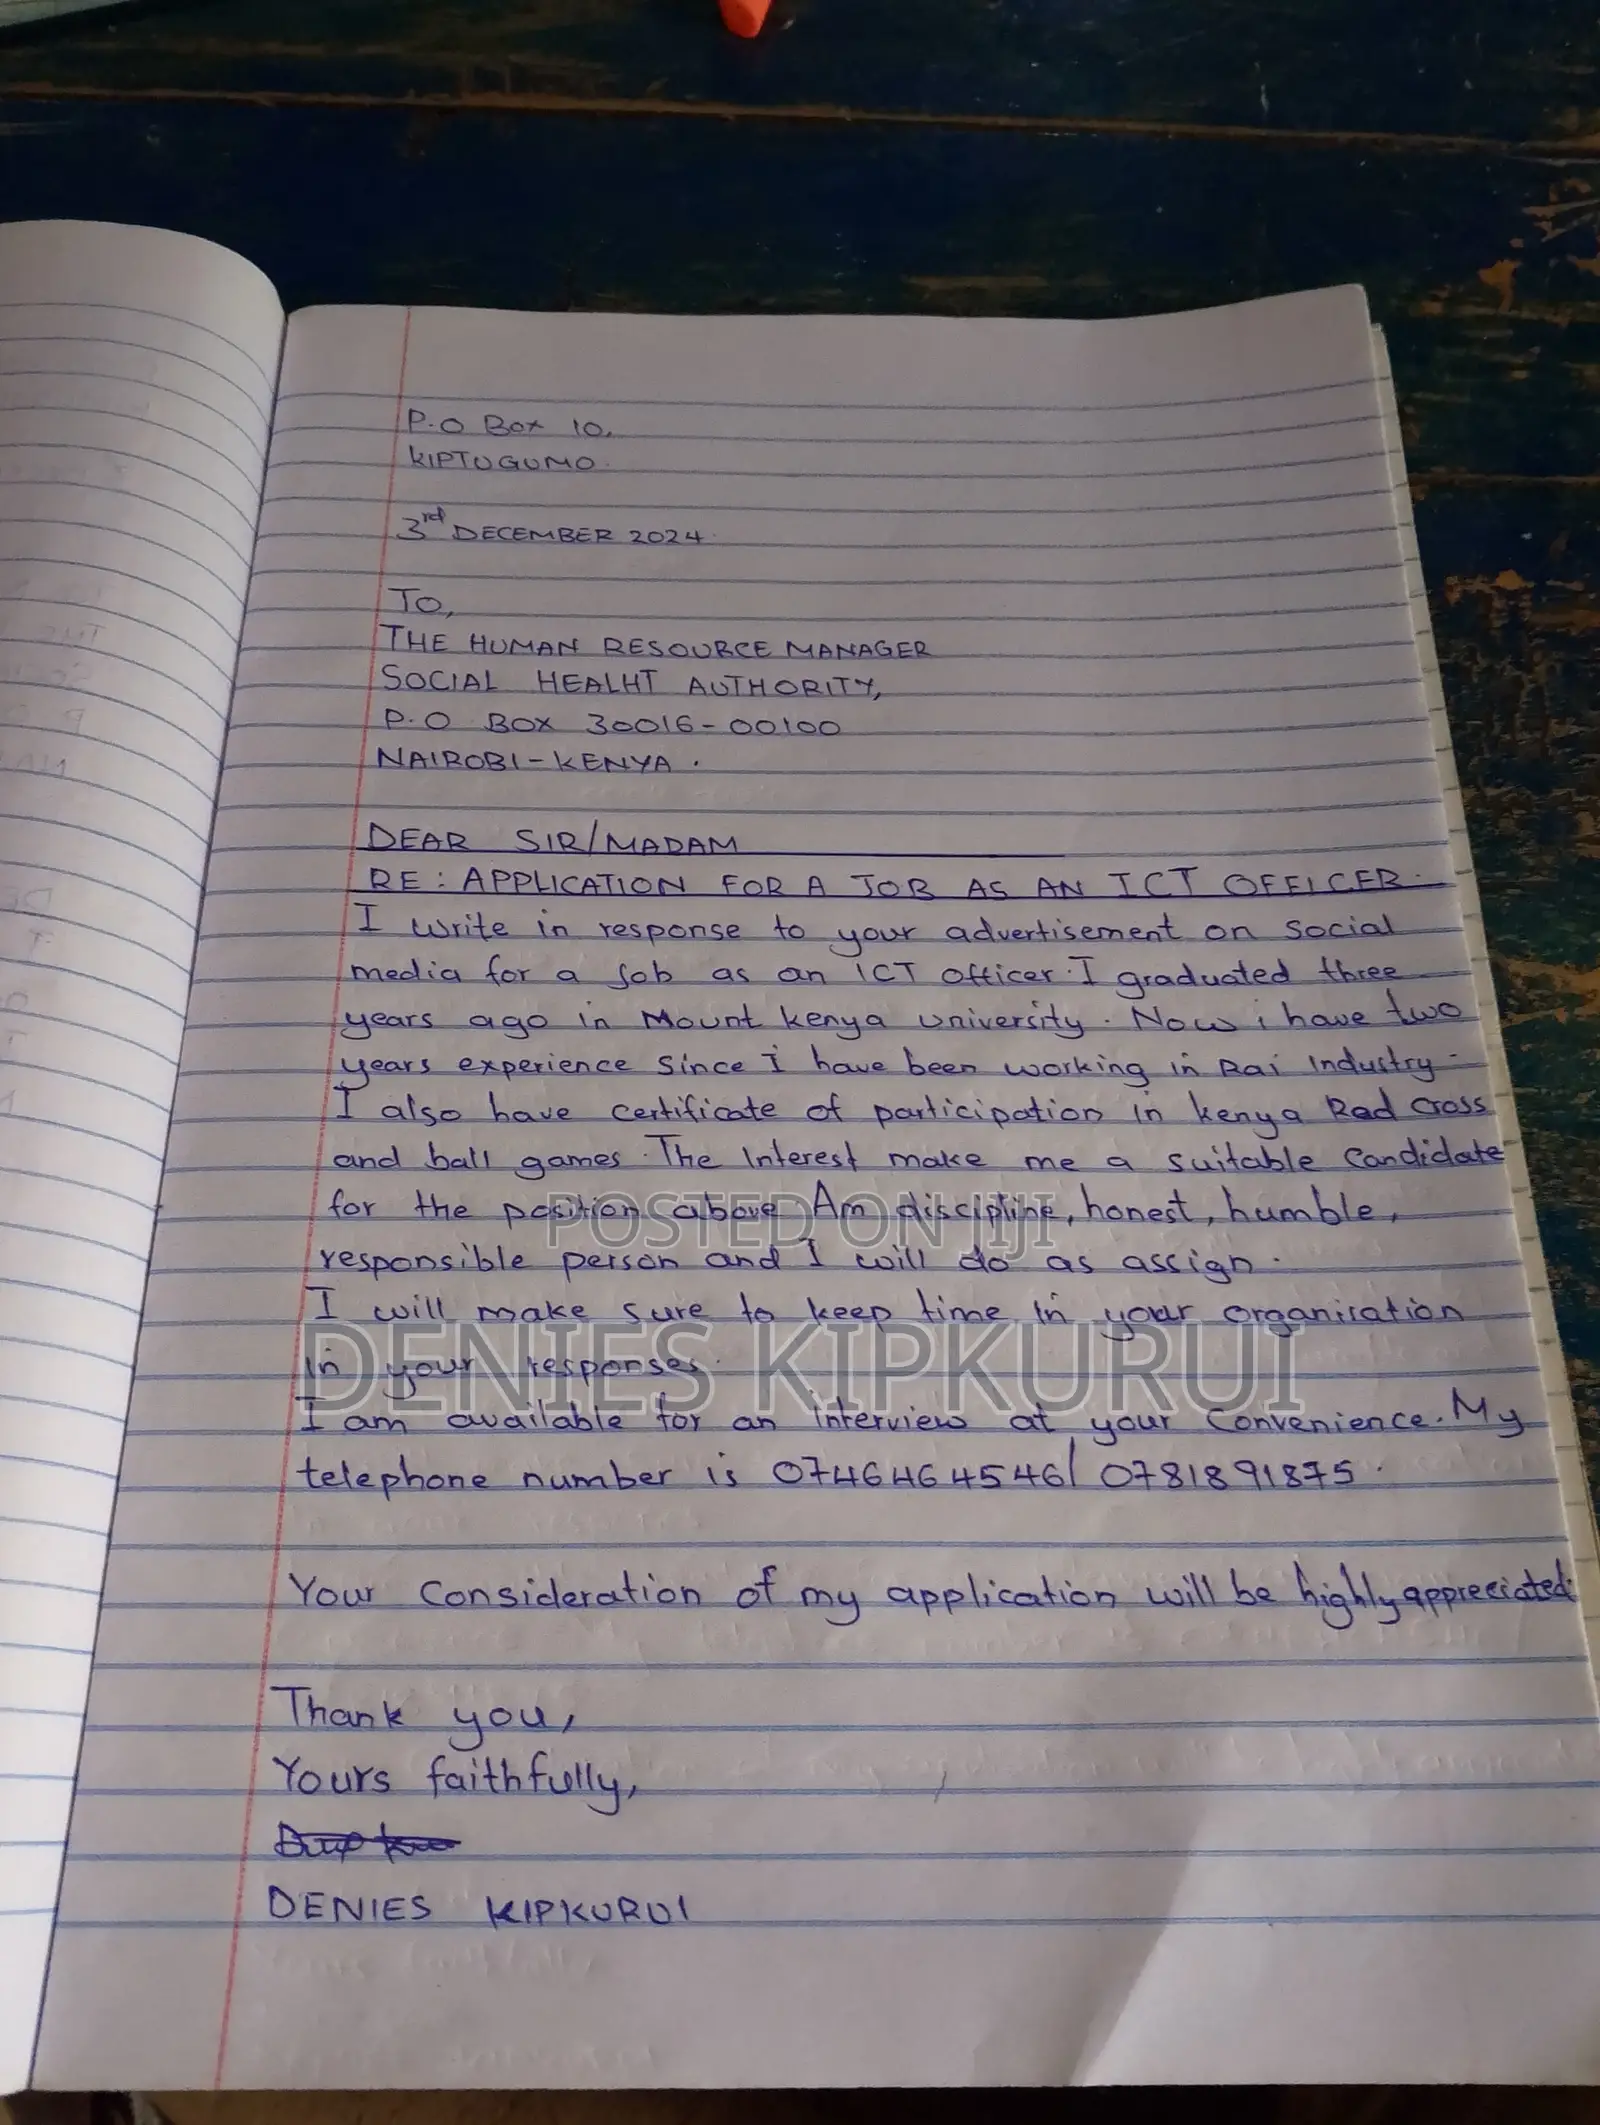 P.O Box 10,
KIPTUGUMO.
3rd DECEMBER 2024.
To,
THE HUMAN RESOURCE MANAGER
SOCIAL HEALHT AUTHORITY,
P.O BOX 30016-00100
NAIROBI-KENYA.
DEAR SIR/MADAM
RE: APPLICATION FOR A JOB AS AN ICT OFFICER.
I write in response to your advertisement on social
media for a job as an ICT officer. I graduated three
years ago in Mount kenya university. Now i have two
years experience since I have been working in Rai Industry.
I also have certificate of participation in kenya Red cross
and ball games. The Interest make me a suitable candidate
for the position above Am discipline, honest, humble,
POSTED ON JIJI
responsible person and I will do as assign.
I will make sure to keep time in your organisation
DENIES KIPKURUI
in your responses.
I am available for an interview at your convenience. My
telephone number is 0746464546/ 0781891875.
Your consideration of my application will be highly appreciated.
Thank you,
Yours faithfully,
DENIES KIPKURUI